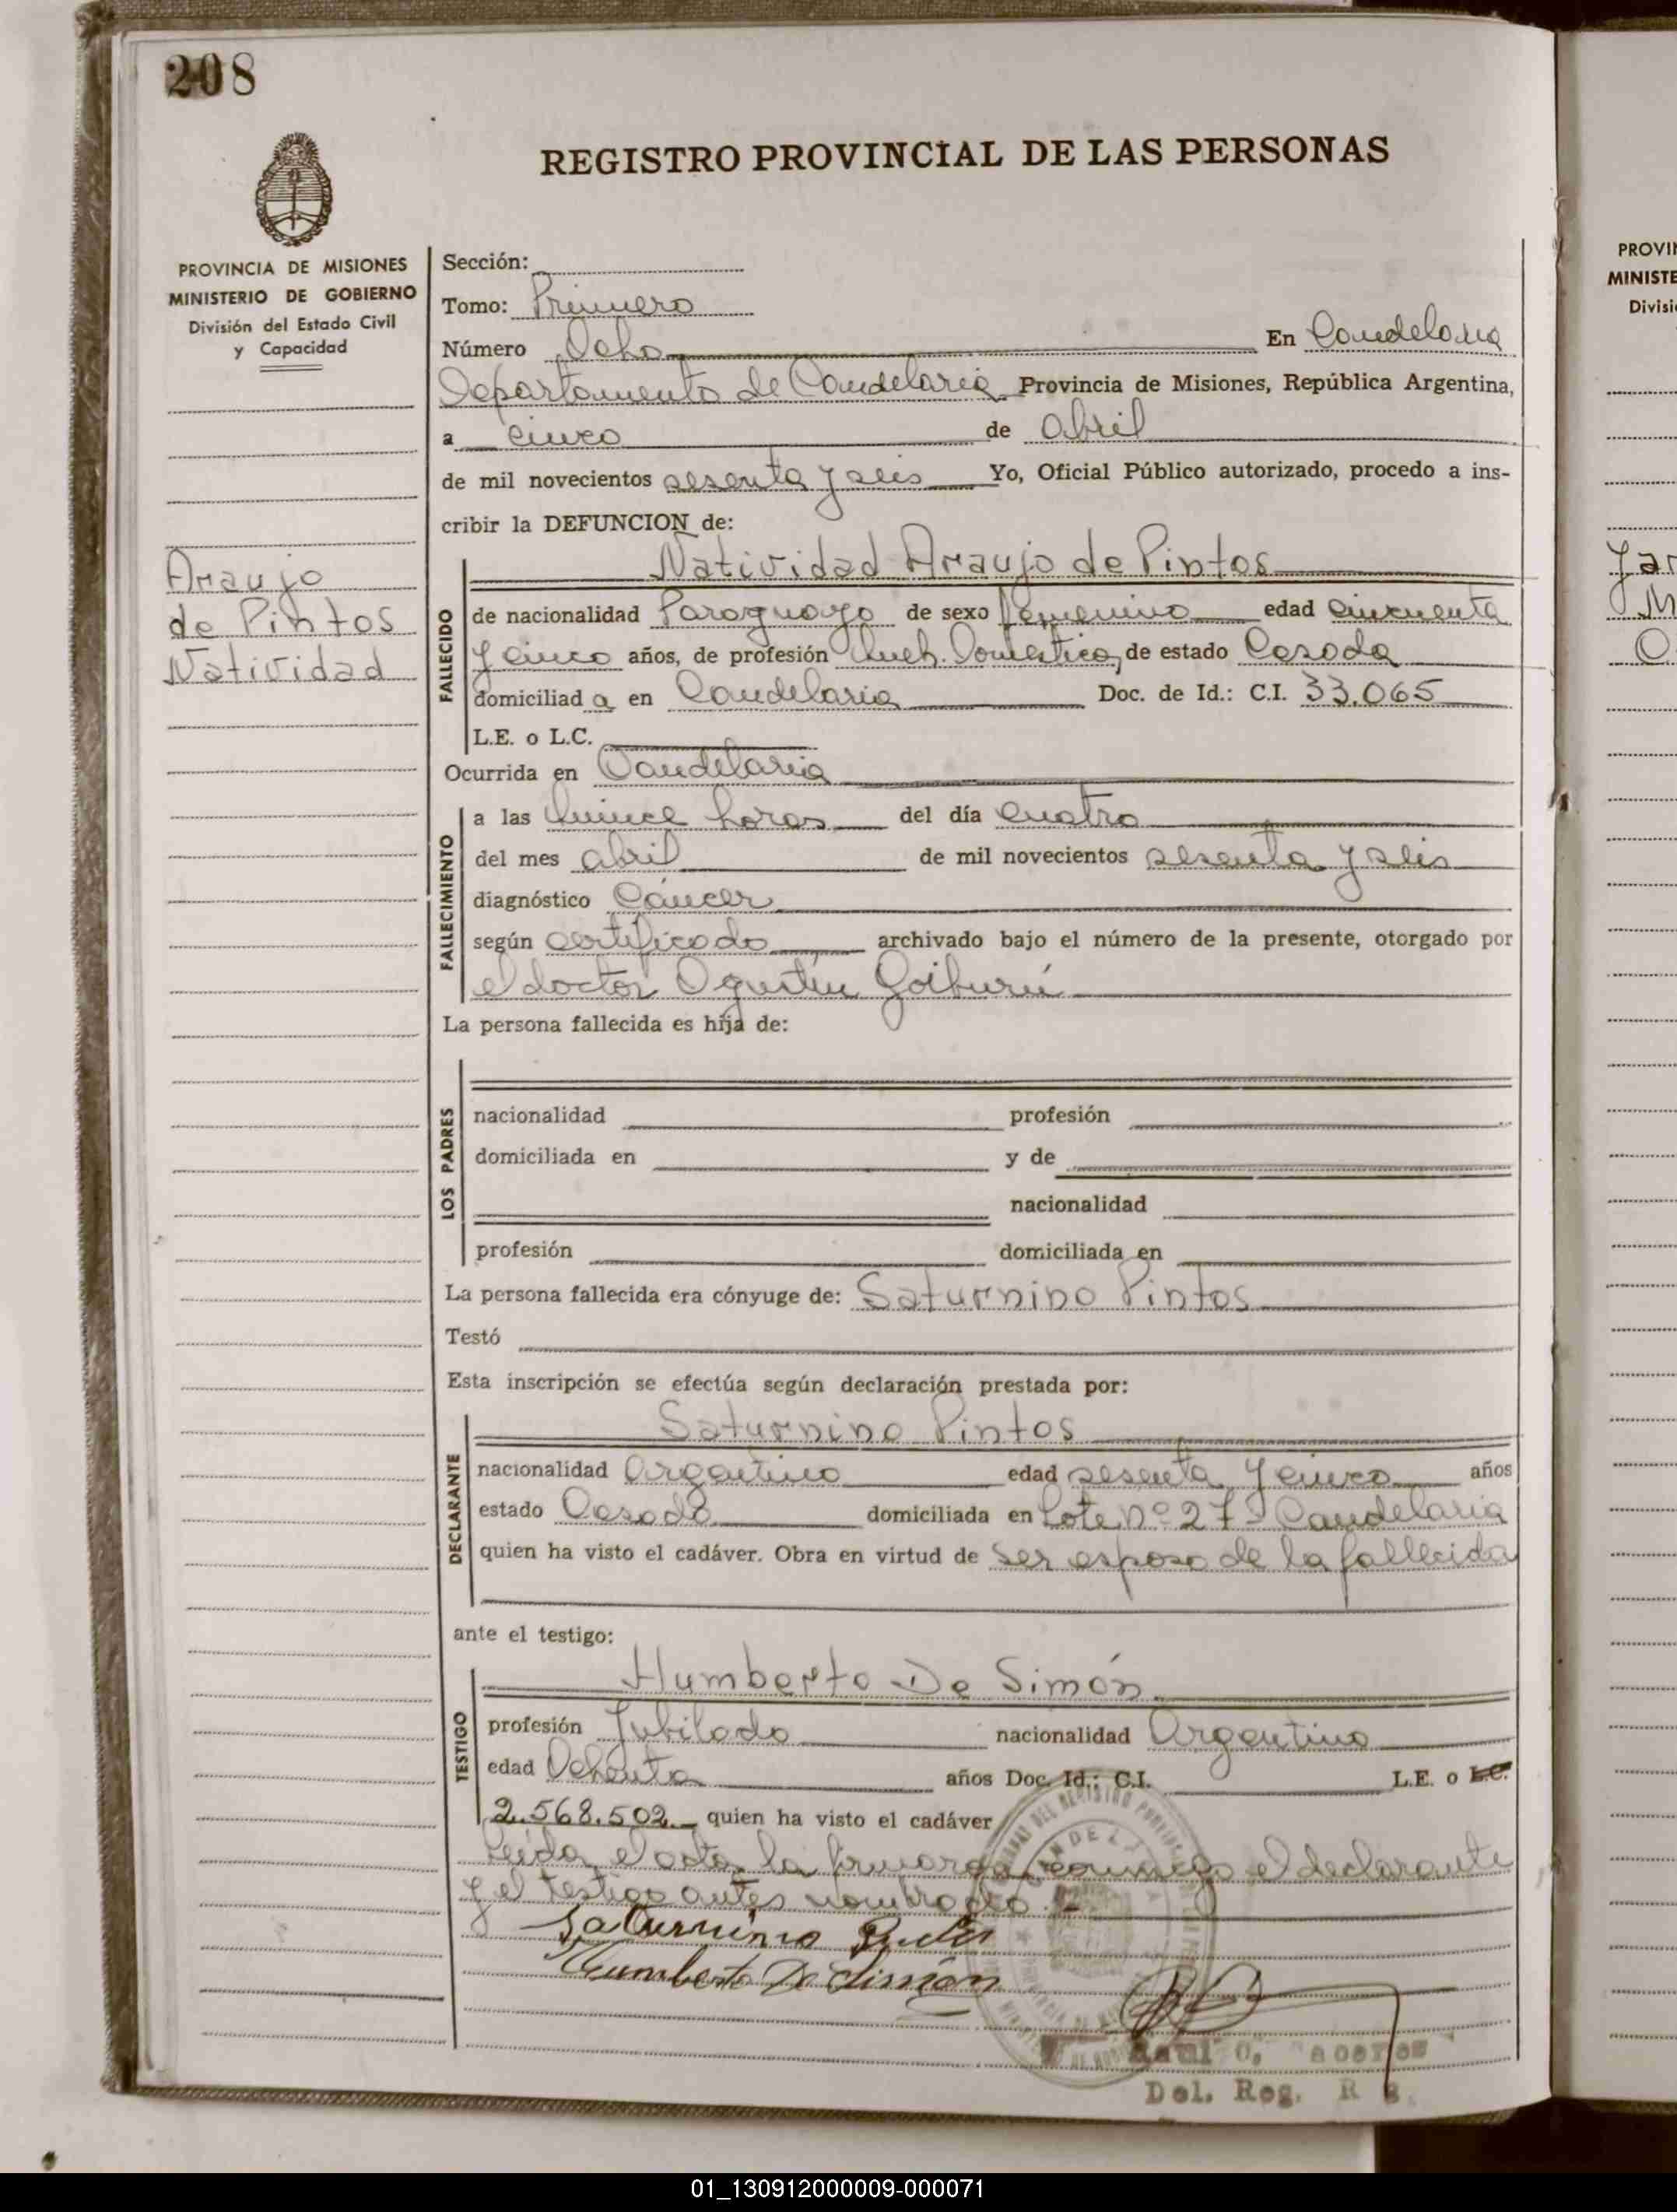 208
REGISTRO PROVINCIAL DE LAS PERSONAS
PROVINCIA DE MISIONES
MINISTERIO DE GOBIERNO
División del Estado Civil
y Capacidad
Araujo
de Pintos
Natividad
Sección:
Tomo: Primero
Número Ocho En Candelaria
Departamento de Candelaria Provincia de Misiones, República Argentina,
a cinco de abril
de mil novecientos sesenta y seis Yo, Oficial Público autorizado, procedo a ins-
cribir la DEFUNCION de:
Natividad Araujo de Pintos
FALLECIDO
de nacionalidad Paraguaya de sexo femenino edad cincuenta
y cinco años, de profesión Queh. Doméstico, de estado Casada
domiciliad a en Candelaria Doc. de Id.: C.I. 33.065
L.E. o L.C.
Ocurrida en Candelaria
FALLECIMIENTO
a las quince horas del día cuatro
del mes abril de mil novecientos sesenta y seis
diagnóstico Cáncer
según certificado archivado bajo el número de la presente, otorgado por
el doctor Agustín Goiburú
La persona fallecida es hija de:
LOS PADRES
nacionalidad profesión
domiciliada en y de
nacionalidad
profesión domiciliada en
La persona fallecida era cónyuge de: Saturnino Pintos
Testó
Esta inscripción se efectúa según declaración prestada por:
Saturnino Pintos
DECLARANTE
nacionalidad Argentino edad sesenta y cinco años
estado Casado domiciliada en Lote nº 27 - Candelaria
quien ha visto el cadáver. Obra en virtud de ser esposo de la fallecida
ante el testigo:
Humberto De Simón
TESTIGO
profesión Jubilado nacionalidad Argentino
edad Ochenta años Doc. Id.: C.I. L.E. o L.C.
2.568.502 quien ha visto el cadáver
Leída el acta, la firmaron conmigo el declarante
y el testigo antes nombrado.
Saturnino Pintos
Humberto De Simón
Del. Reg.
PROVIN
MINISTE
Divisi
01_130912000009-000071